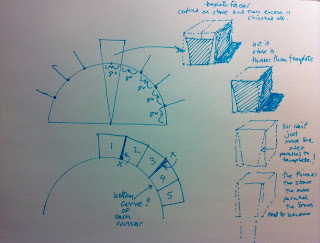 template
centred on stone and then excess is
chiseled off.
but if
stone is
thinner than template
8°
8°
8°
8°
8°
You can't
just
move the
parallel
to template!
1
2
3
4
5
x
bottom
curve
of
each
voussoir
?
the thinner
the stone
the more
parallel
the lines
need to become